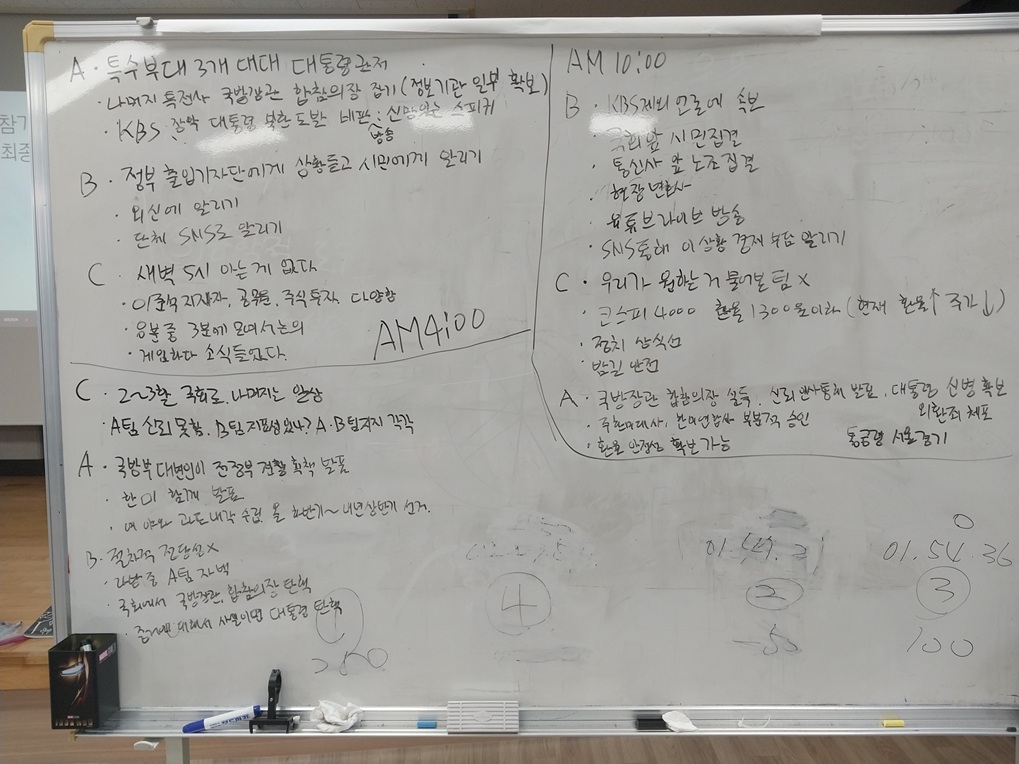 A · 특수부대 3개 대대 대통령관저
· 나머지 특전사 국방장관 합참의장 잡기 (정보기관 일부 확보)
· KBS 장악 대통령 북한 도발 비판 방송 : 신망있는 스피커
B · 정부 출입기자단에게 상황듣고 시민에게 알리기
· 외신에 알리기
· 단체 SNS로 알리기
C · 새벽 5시 아는게 없다
· 이준석 지지자, 주식투자 다양함
· 흥분 중 3분에 모여서 논의
· 게임하다 소식들었다
AM4:00
AM 10:00
B · KBS제외 언론에 속보
· 국회앞 시민집결
· 통신사 앞 노조집결
· 현장 변호사
· 유튜브라이브 방송
· SNS통해 이상황 경제 부담 알리기
C · 우리가 원하는거 물어본 팀 X
· 코스피 4000 환율 1300원이하 (현재 환율↑ 주가↓)
· 정치 삼식선
· 밤길 안전
A · 국방장관 합참의장 설득, 신뢰 통해 발표, 대통령 신병 확보
외환죄 체포
· 주한미대사, 부분적 승인
· 환율 안정성 확보 가능
통금령 서울경기
C · 2~3활 국회로, 나머지는 일상
· A팀 신뢰 못함, B팀 지도성있나? A·B팀지지 각각
A · 국방부 대변인이 전정부 실책 발표
· 한미 함께 발표
· 여 야와 과도내각 수립, 올 하반기~내년상반기 선거.
B · 절차적 정당성X
· 재난 중 A팀 자백
· 국회에서 국방장관, 합참의장 탄핵
· 사실이면 대통령 탄핵
1
250
4
01.54.2
2
-50
0
01.54.36
3
100